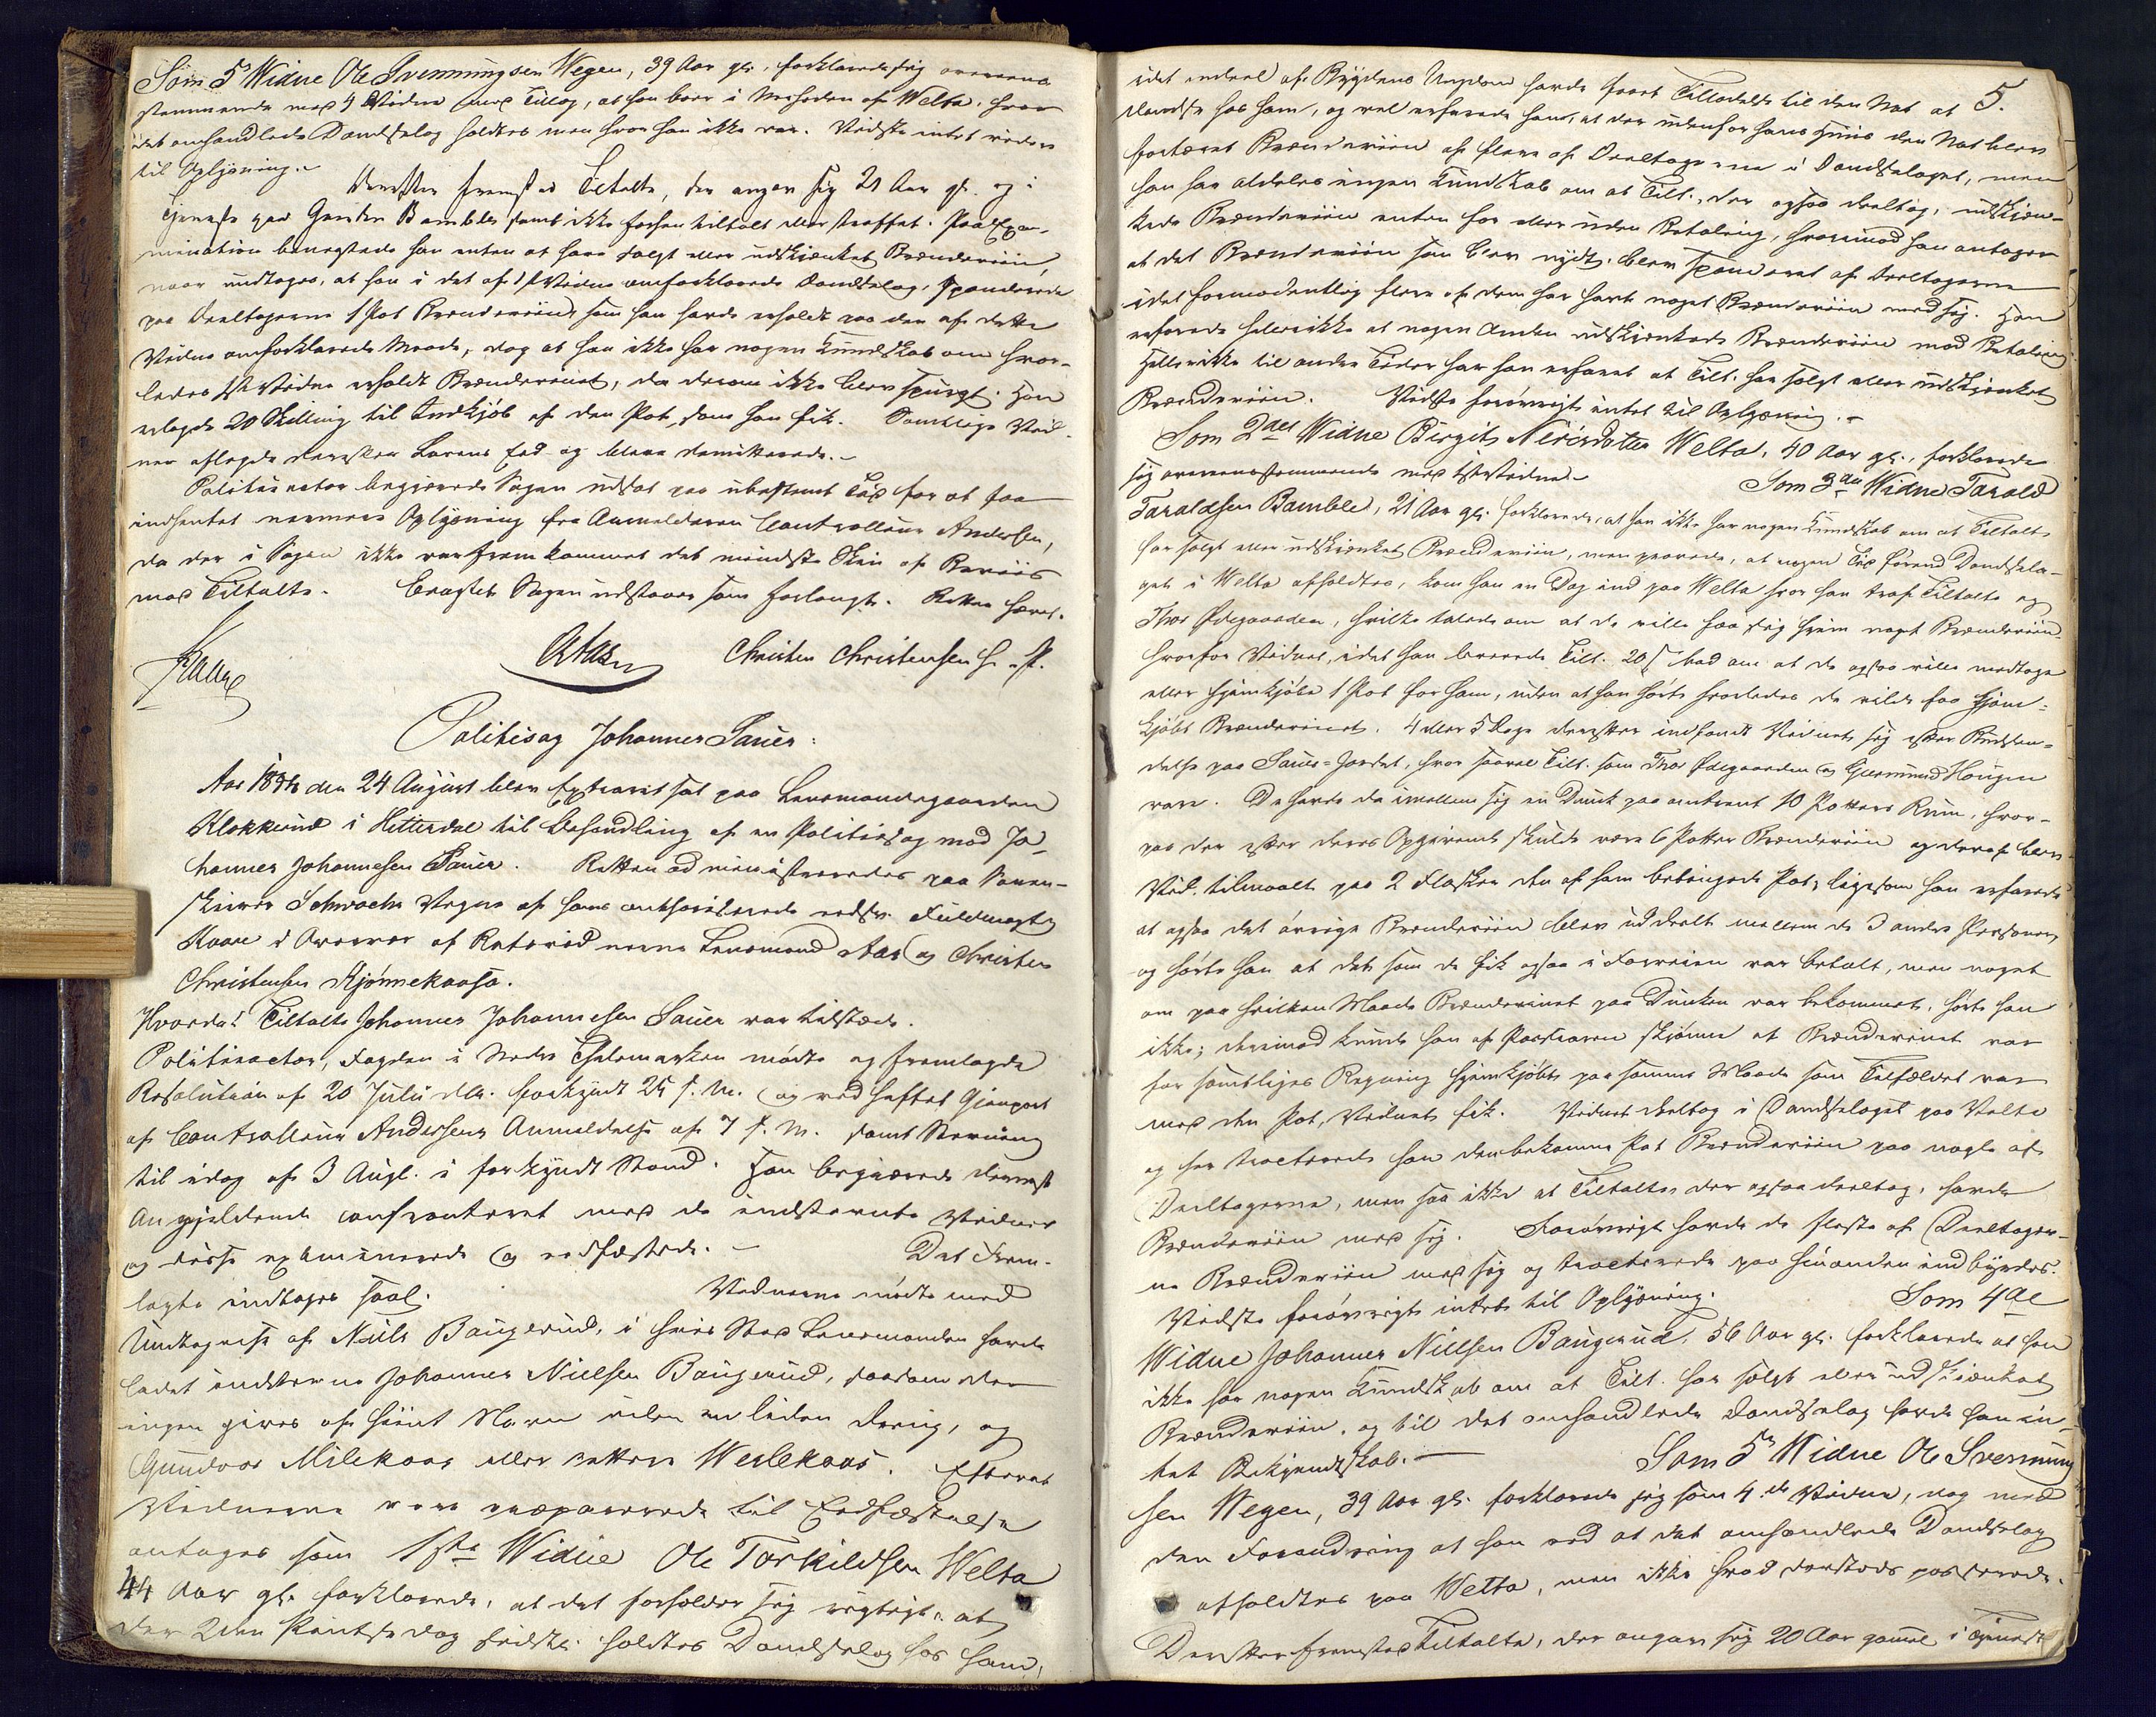 Som 5' Widne Ole Svenningsen Wegen, 39 Aar gl., forklarede sig overeens
stemmende med 4 Vidne med Tillæg, at han boer i Nærheden af Welta, hvor
det omhandlede Dandselag holdtes men hvor han ikke var. Vidste intet videre
til Oplysning.
Derefter fremstod Tiltalte, der angav sig 21 Aar gl. og i
Tjeneste paa Gaarden Bamble samt ikke forhen tiltalt eller straffet. Paa Exa-
mination benægtede han enten at have solgt eller udskjænket Brændeviin,
naar undtages, at han i det af 1ste Vidne omforklarede Dandselag, spanderede
paa Deeltagerne 1 Pot Brændeviin som han havde erholdt paa den af dette
Vidne omforklarede Maade, dog at han ikke har nogen Kundskab om hvor-
ledes 1st Vidne erholdt Brændevinet, da derom ikke blev spurgt. Han
erlagde 20 Skilling til Indkjøb af den Pot, som han fik. Samtlige Vid-
ner aflagde derefter Lovens Eed og bleve demitterede.
Politiactor begjærede Sagen udsat paa ubestemt Tid for at faa
indhentet nærmere Oplysning fra Anmelderen Controlleur Andersen,
da der i Sagen ikke var fremkommet det mindste Skin af Beviis
mod Tiltalte. Eragtet Sagen udstaaer som forlangt. Retten hævet.
Kaae
Aas
Christen Christensen
Politisag Johannes Sauer:
Aar 1854 den 24 August blev Extraret sat paa Lensmandsgaarden
Klokkerud i Hitterdal til Behandling af en Politisag mod Jo-
hannes Johannesen Sauer. Retten administreredes paa Soren-
skriver Schwachs Vegne af hans authoriserede edsv. Fuldmægtig
Kaae i Overvær af Retsvidnerne Lensmand Aas og Christen
Christensen Kjønnekaasa.
Hvorda! Tiltalte Johannes Johannesen Sauer var tilstede.
Politiactor, Fogden i Nedre Thelemarken mødte og fremlagde
Resolution af 20 Juli d.A. forkyndt 25 s.M. og vedheftet Gjenpart
af Controlleur Andersens Anmeldelse af 7 s.M. samt Stævning
til idag af 3 Augt. i forkyndt Stand. Han begjærede dernæst
Angjeldende confronteret med de indstævnte Vidner
og disse examinerede og eedfæstede. — Det Frem-
lagte indtages saal. Vidnerne mødte med
Undtagelse af Niels Baugerud, i hvis Sted Lensmanden havde
ladet indstævne Johannes Nielsen Baugerud, saasom der
ingen gives af hiint Navn uden en liden Dreng, og
Gundvor Milekaas eller rettere Weslekaas. Efterat
Vidnerne vare præparerede til Eedfæstelse
antoges som 1ste Widne Ole Torkildsen Welta
44 Aar gl. forklarede, at det forholder sig rigtigt, at
der 2den Pintsedag sidstl. holdtes Dandselag hos ham,
5.
idet endeel af Bygdens Ungdom havde faaet Tilladelse til den Nat at
dandse hos ham, og vel erfarede han, at der udenfor hans Huus den Nat blev
fortæret Brændeviin af flere af Deeltagerne i Dandselaget, men
han har aldeles ingen Kundskab om at Tilt., der ogsaa deeltog, udskjæn-
kede Brændeviin enten for eller uden Betaling, hvorimod han antager
at det Brændeviin som blev nydt, blev spanderet af Deeltagerne
idet formodentlig flere af dem har havt noget Brændeviin med sig. Han
erfarede hellerikke at nogen Anden udskjænkede Brændeviin mod Betaling
Hellerikke til andre Tider har han erfaret at Tilt. har solgt eller udskjænket
Brændeviin. Vidste forøvrigt intet til Oplysning. -
Som 2det Widne Birgit Neriisdatter Welta, 40 Aar gl., forklarede
sig overeensstemmende med 1ste Vidne. Som 3die Widne Tarald
Taraldsen Bamble, 21 Aar gl. forklarede, at han ikke har nogen Kundskab om at Tiltalte
har solgt eller udskjænket Brændeviin, men provede, at nogen Tid førend Dandsela-
get i Welta afholdtes, kom han en Dag ind paa Welta hvor han traf Tiltalte og
Thor Ødegaarden, hvilke talede om at de ville faa sig hjem noget Brændeviin
hvorfor Vidnet, idet han leverede Tilt. 20 s bad om at de ogsaa ville medtage
eller hjemkjøbe 1 Pot for ham, uden at han hørte hvorledes de vilde faa hjem-
kjøbt Brændevinet. 4 eller 5 Dage derefter indfandt Vidnet sig efter Budsen-
delse paa Sauer-Jordet, hvor saavel Tilt. som Thor Ødegaarden og Gjermund Haugen
vare. De havde da imellem sig en Dunk paa omtrent 10 Potters Rum, hvor-
paa der efter deres Opgivende skulde være 6 Potter Brændeviin og deraf blev
Vid. tilmaalt paa 2 Flasker den af ham betingede Pot, ligesom han erfarede
at ogsaa det øvrige Brændeviin blev uddeelt mellem de 3 andre Personer,
og hørte han at det som de fik ogsaa i Forveien var betalt, men noget
om paa hvilken Maade Brændevinet paa Dunken var bekommet, hørte han
ikke; derimod kunde han af Passiaren skjønne at Brændevinet var
for samtliges Regning hjemkjøbt paa samme Maade som Tilfældet var
med den Pot, Vidnet fik. Vidnet deeltog i Dandselaget paa Velta
og her tracterede han den bekomne Pot Brændeviin paa nogle af
Deeltagerne, men saa ikke at Tiltalte, der ogsaa deeltog, havde
Brændeviin med sig. Forøvrigt havde de fleste af Deeltager-
ne Brændeviin med sig og tracterede paa hinanden indbyrdes.
Vidste forøvrigt intet til Oplysning. Som 4de
Widne Johannes Nielsen Baugerud, 56 Aar gl. forklarede at han
ikke har nogen Kundskab om at Tilt. har solgt eller udskjænket
Brændeviin, og til det omhandlede Dandselag havde han in-
tet Bekjendtskab. — Som 5' Widne Ole Svenning
sen Wegen, 39 Aar gl. forklarede sig som 4de Vidne, dog med
den Forandring at han ved at det omhandlede Dandselag
afholdtes paa Wetta, men ikke hvad dersteds passerede.
Derefter fremstod Tiltalte, der angav sig 20 Aar gammel i Tjeneste